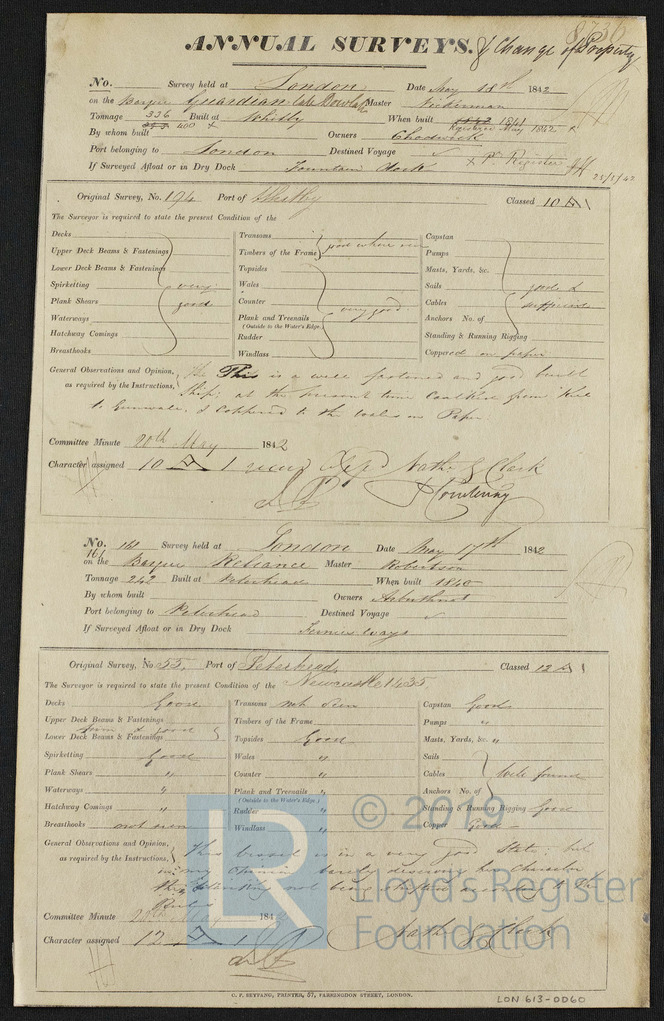 ANNUAL SURVEYS. & Change of Property
No. Survey held at London Date May 18th 1842
on the Barque Guardian late Master
Tonnage 336 Built at Whitby When built 1841
400 x Register May 1842
By whom built Owners Chadwick
Port belonging to London Destined Voyage
If Surveyed Afloat or in Dry Dock Fountain dock x Pr. Register
25/5/42
Original Survey, No. 194 Port of Whitby Classed 10 A 1
The Surveyor is required to state the present Condition of the
Decks Transoms Capstan
Upper Deck Beams & Fastenings Timbers of the Frame good where seen Pumps
Lower Deck Beams & Fastenings Topsides Masts, Yards, &c.
Spirketting very Wales Sails good &
Plank Shears good Counter very good Cables sufficient
Waterways Plank and Treenails Anchors No. of
(Outside to the Water's Edge.)
Hatchway Comings Rudder Standing & Running Rigging
Breasthooks Windlass Coppered on paper
General Observations and Opinion, This is a well fastened and good built
as required by the Instructions, Ship; at the present time Caulked from Keel
to Gunwale, & Coppered to the Wales on Paper
Committee Minute 20th May 1842
Character assigned 10 A 1 Nathl. G Clark
Courtenay
No. 161 Survey held at London Date May 17th 1842
161
on the Barque Reliance Master Robertson
Tonnage 242 Built at Peterhead When built 1840
By whom built Owners Arbuthnot
Port belonging to Peterhead Destined Voyage
If Surveyed Afloat or in Dry Dock Ways
Original Survey, No 55, Port of Peterhead, Classed 12 A 1
The Surveyor is required to state the present Condition of the Newcastle 1435
Decks Good Transoms not seen Capstan Good
Upper Deck Beams & Fastenings Timbers of the Frame Pumps "
seen & good
Lower Deck Beams & Fastenings Topsides Good Masts, Yards, &c. "
Spirketting Good Wales " Sails
Plank Shears " Counter " Cables well found
Waterways " Plank and Treenails " Anchors No. of
(Outside to the Water's Edge.)
Hatchway Comings " Rudder " Standing & Running Rigging Good
Breasthooks not seen Windlass " Copper Good
General Observations and Opinion, This vessel is in a very good State; but
as required by the Instructions, in my Opinion barely deserves her Character
the not being according to the
Rules
Committee Minute 20th May 1842
Character assigned 12 A 1 Nathl. G Clark
C. F. SEYFANG, PRINTER, 57, FARRINGDON STREET, LONDON.
LON 613-0060
LR © 2019
Lloyd's Register
Foundation